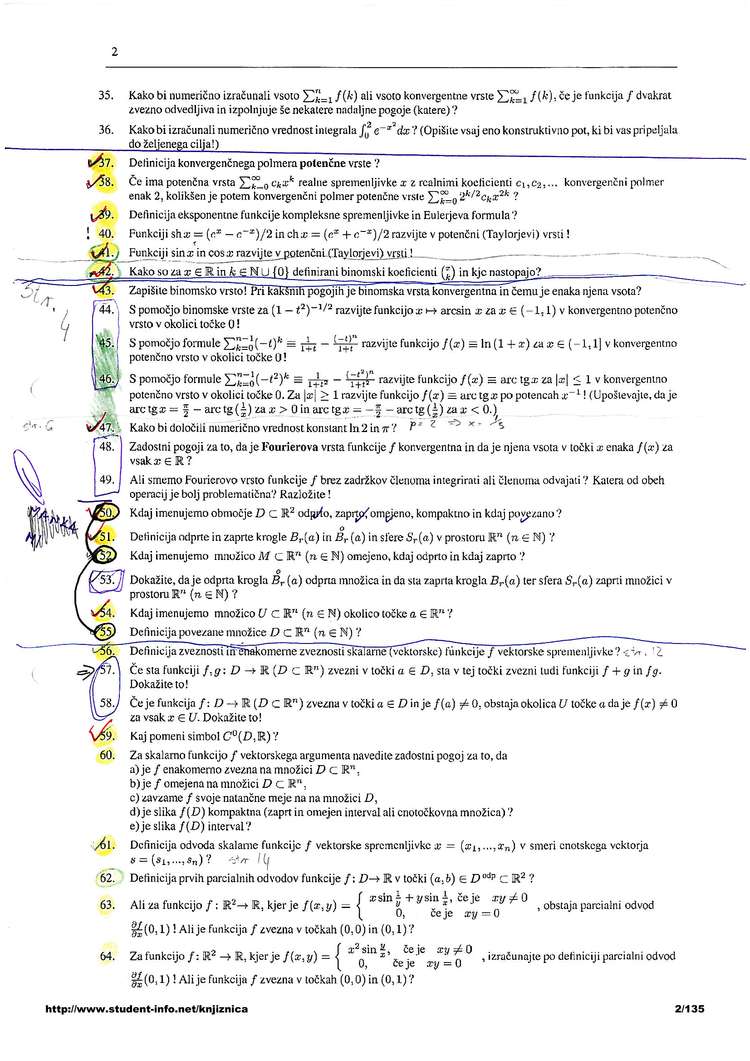 2
35. Kako bi numerično izračunali vsoto ∑ₖ₌₁ⁿ f(k) ali vsoto konvergentne vrste ∑ₖ₌₁^∞ f(k), če je funkcija f dvakrat
zvezno odvedljiva in izpolnjuje še nekatere nadaljne pogoje (katere) ?
36. Kako bi izračunali numerično vrednost integrala ∫₀² e^{-x²}dx ? (Opišite vsaj eno konstruktivno pot, ki bi vas pripeljala
do željenega cilja!)
37. Definicija konvergenčnega polmera potenčne vrste ?
38. Če ima potenčna vrsta ∑ₖ₌₀^∞ cₖxᵏ realne spremenljivke x z realnimi koeficienti c₁, c₂, ... konvergenčni polmer
enak 2, kolikšen je potem konvergenčni polmer potenčne vrste ∑ₖ₌₀^∞ 2^{k/2}cₖx^{2k} ?
39. Definicija eksponentne funkcije kompleksne spremenljivke in Eulerjeva formula ?
! 40. Funkciji sh x = (eˣ − e⁻ˣ)/2 in ch x = (eˣ + e⁻ˣ)/2 razvijte v potenčni (Taylorjevi) vrsti !
41. Funkciji sin x in cos x razvijte v potenčni (Taylorjevi) vrsti !
42. Kako so za x ∈ ℝ in k ∈ ℕ ∪ {0} definirani binomski koeficienti (x k) in kje nastopajo?
43. Zapišite binomsko vrsto! Pri kakšnih pogojih je binomska vrsta konvergentna in čemu je enaka njena vsota?
Str. 4
44. S pomočjo binomske vrste za (1 − t²)^{−1/2} razvijte funkcijo x ↦ arcsin x za x ∈ (−1, 1) v konvergentno potenčno
vrsto v okolici točke 0 !
45. S pomočjo formule ∑ₖ₌₀ⁿ⁻¹(−t)ᵏ ≡ 1/(1+t) − (−t)ⁿ/(1+t) razvijte funkcijo f(x) ≡ ln (1 + x) za x ∈ (−1, 1] v konvergentno
potenčno vrsto v okolici točke 0 !
46. S pomočjo formule ∑ₖ₌₀ⁿ⁻¹(−t²)ᵏ ≡ 1/(1+t²) − (−t²)ⁿ/(1+t²) razvijte funkcijo f(x) ≡ arc tg x za |x| ≤ 1 v konvergentno
potenčno vrsto v okolici točke 0. Za |x| ≥ 1 razvijte funkcijo f(x) ≡ arc tg x po potencah x⁻¹ ! (Upoštevajte, da je
arc tg x = π/2 − arc tg (1/x) za x > 0 in arc tg x = −π/2 − arc tg (1/x) za x < 0.)
str. 6
47. Kako bi določili numerično vrednost konstant ln 2 in π ?
48. Zadostni pogoji za to, da je Fourierova vrsta funkcije f konvergentna in da je njena vsota v točki x enaka f(x) za
vsak x ∈ ℝ ?
49. Ali smemo Fourierovo vrsto funkcije f brez zadržkov členoma integrirati ali členoma odvajati ? Katera od obeh
operacij je bolj problematična? Razložite !
50. Kdaj imenujemo območje D ⊂ ℝ² odprto, zaprto, omejeno, kompaktno in kdaj povezano ?
51. Definicija odprte in zaprte krogle Bᵣ(a) in B̊ᵣ(a) in sfere Sᵣ(a) v prostoru ℝⁿ (n ∈ ℕ) ?
52. Kdaj imenujemo množico M ⊂ ℝⁿ (n ∈ ℕ) omejeno, kdaj odprto in kdaj zaprto ?
53. Dokažite, da je odprta krogla B̊ᵣ(a) odprta množica in da sta zaprta krogla Bᵣ(a) ter sfera Sᵣ(a) zaprti množici v
prostoru ℝⁿ (n ∈ ℕ) ?
54. Kdaj imenujemo množico U ⊂ ℝⁿ (n ∈ ℕ) okolico točke a ∈ ℝⁿ ?
55. Definicija povezane množice D ⊂ ℝⁿ (n ∈ ℕ) ?
56. Definicija zveznosti in enakomerne zveznosti skalarne (vektorske) funkcije f vektorske spremenljivke ? str. 12
57. Če sta funkciji f, g: D → ℝ (D ⊂ ℝⁿ) zvezni v točki a ∈ D, sta v tej točki zvezni tudi funkciji f + g in fg.
Dokažite to!
58. Če je funkcija f: D → ℝ (D ⊂ ℝⁿ) zvezna v točki a ∈ D in je f(a) ≠ 0, obstaja okolica U točke a da je f(x) ≠ 0
za vsak x ∈ U. Dokažite to!
59. Kaj pomeni simbol C⁰(D, ℝ) ?
60. Za skalarno funkcijo f vektorskega argumenta navedite zadostni pogoj za to, da
a) je f enakomerno zvezna na množici D ⊂ ℝⁿ,
b) je f omejena na množici D ⊂ ℝⁿ,
c) zavzame f svoje natančne meje na na množici D,
d) je slika f(D) kompaktna (zaprt in omejen interval ali enotočkovna množica) ?
e) je slika f(D) interval ?
61. Definicija odvoda skalarne funkcije f vektorske spremenljivke x = (x₁, ..., xₙ) v smeri enotskega vektorja
s = (s₁, ..., sₙ) ? str 14
62. Definicija prvih parcialnih odvodov funkcije f: D → ℝ v točki (a, b) ∈ D^{odp} ⊂ ℝ² ?
63. Ali za funkcijo f : ℝ² → ℝ, kjer je f(x, y) = { x sin 1/y + y sin 1/x, če je xy ≠ 0
0, če je xy = 0 , obstaja parcialni odvod
∂f/∂x (0, 1) ! Ali je funkcija f zvezna v točkah (0, 0) in (0, 1) ?
64. Za funkcijo f: ℝ² → ℝ, kjer je f(x, y) = { x² sin y/x, če je xy ≠ 0
0, če je xy = 0 , izračunajte po definiciji parcialni odvod
∂f/∂x (0, 1) ! Ali je funkcija f zvezna v točkah (0, 0) in (0, 1) ?
http://www.student-info.net/knjiznica 2/135